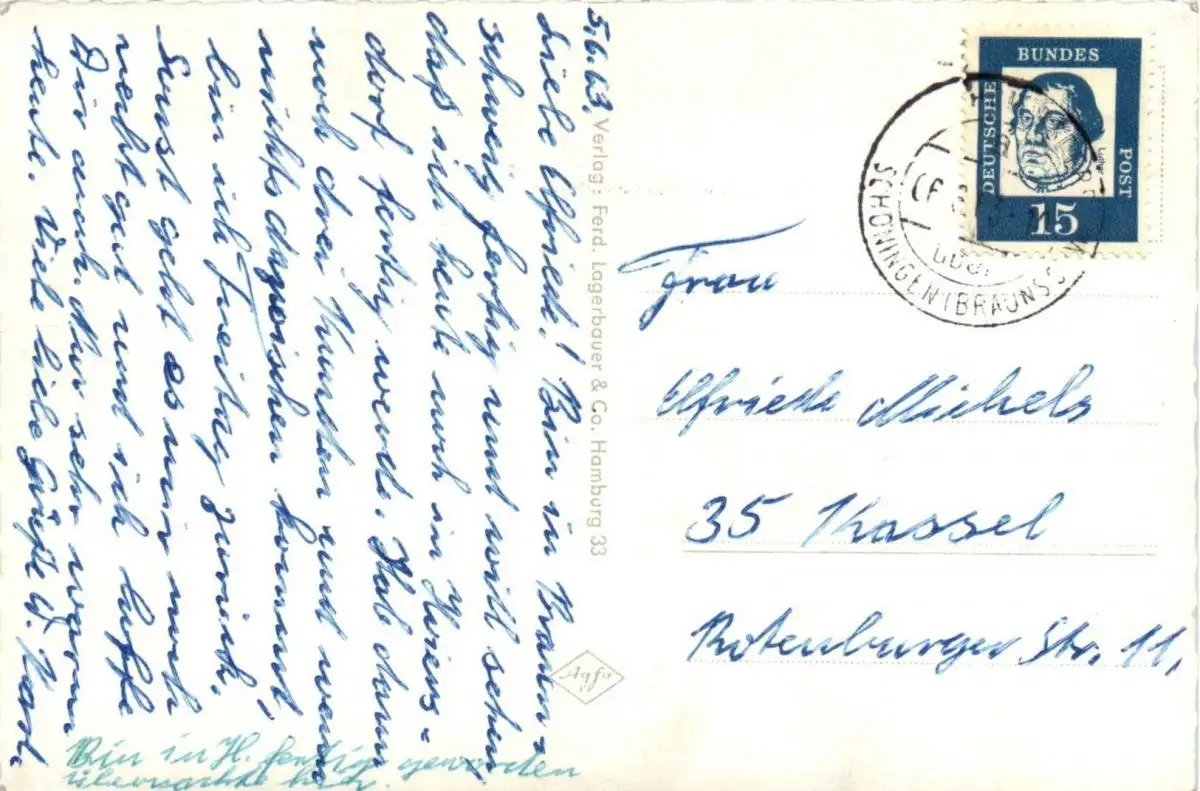 5.6.63.
Liebe Elfriede! Bin in Braun-
schweig fertig und will sehen,
daß ich heute noch in Hoiers-
dorf fertig werde. Hab dann
noch drei Kunden und wenn
nichts dazwischen kommt
bin ich Freitag zurück.
Sonst geht es mir noch
recht gut und ich hoffe
Dir auch. Nur sehr warm
heute. Viele liebe Grüße W. Karl.
Bin in H. fertig geworden
übernachte hier.
Verlag: Ferd. Lagerbauer & Co. Hamburg 33
Agfa
DEUTSCHE
BUNDES
POST
Luther
15
SCHÖNINGEN (BRAUNSCHW
Frau
Elfriede Michels
35 Kassel
Rotenburger Str. 11,